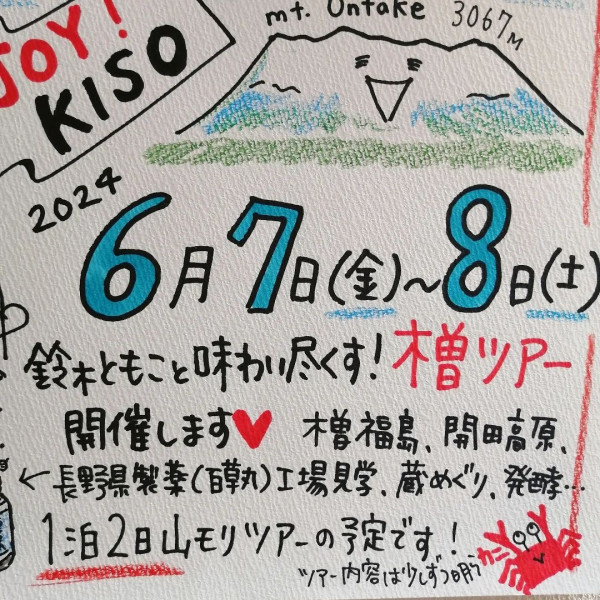 JOY!
KISO
mt. Ontake 3067M
2024
6月7日(金)〜8日(土)
鈴木ともこと味わい尽くす!木曽ツアー
開催します♥ 木曽福島、開田高原、
←長野県製薬(百草丸)工場見学、蔵めぐり、発酵…
1泊2日山モリツアーの予定です!
ツアー内容は少しずつ